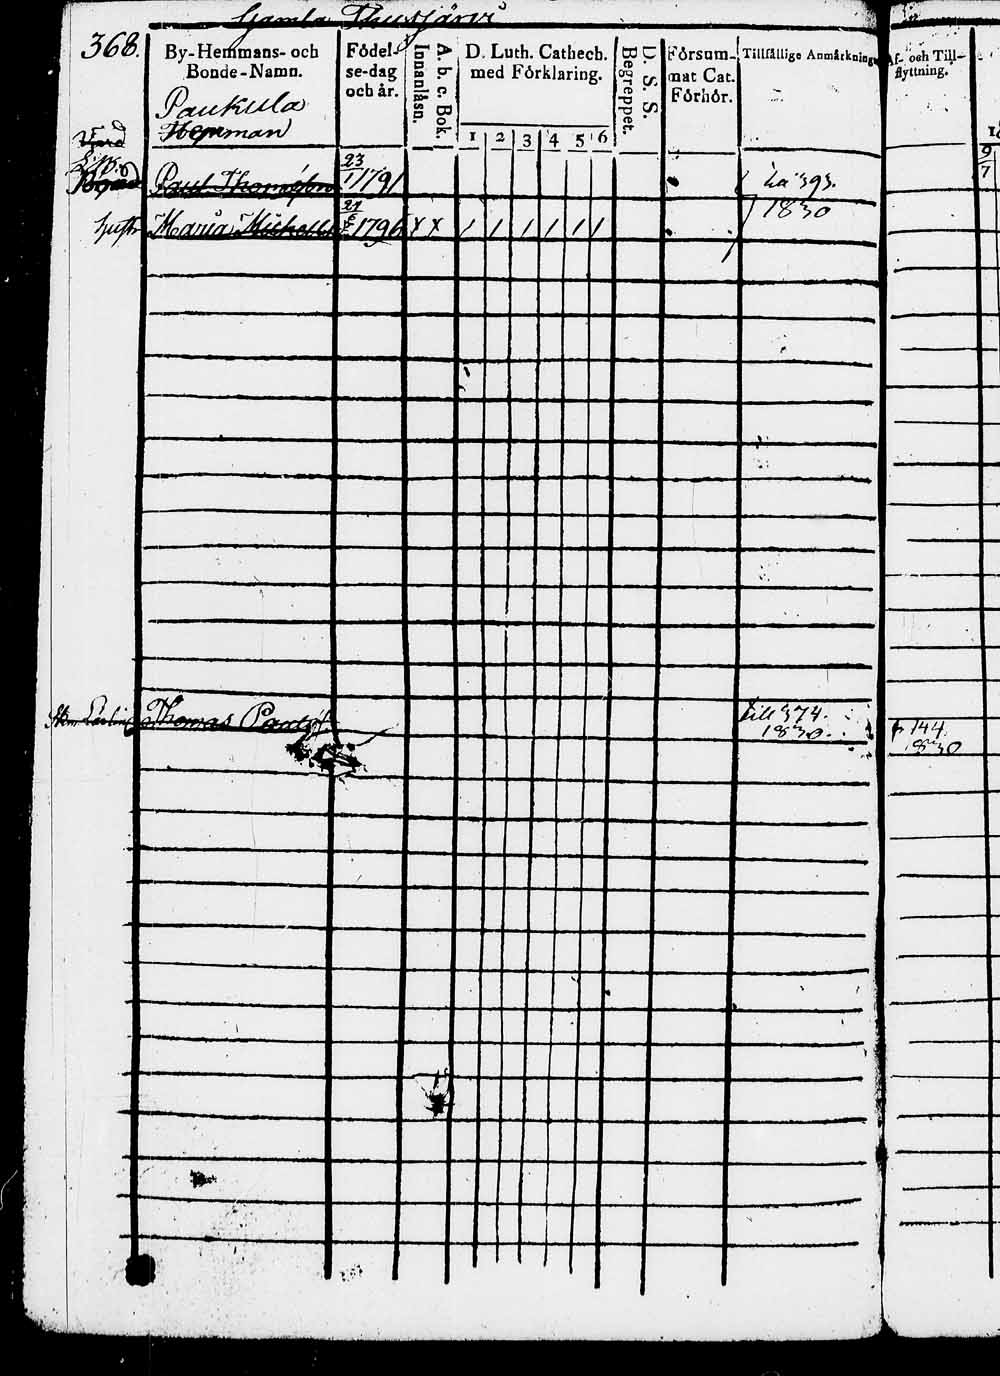 Gamla Thusjärvi
368.
By-Hemmans- och
Bonde-Namn.
Födel-
se-dag
och år.
Innanläsn.
A. b. c. Bok.
D. Luth. Cathech.
med Förklaring.
1 2 3 4 5 6
Begreppet.
D. S. S.
Försum-
mat Cat.
Förhör.
Tillfällige Anmärkningar
Af- och Till-
flyttning.
Paukula
Hemman
Paul Thomasson 23/1 1791 393.
hustr Maria Michelsd 1796 x x / / / / / / 1830
Thomas Paulss till 374.
1830.
p 144
1830
9
7